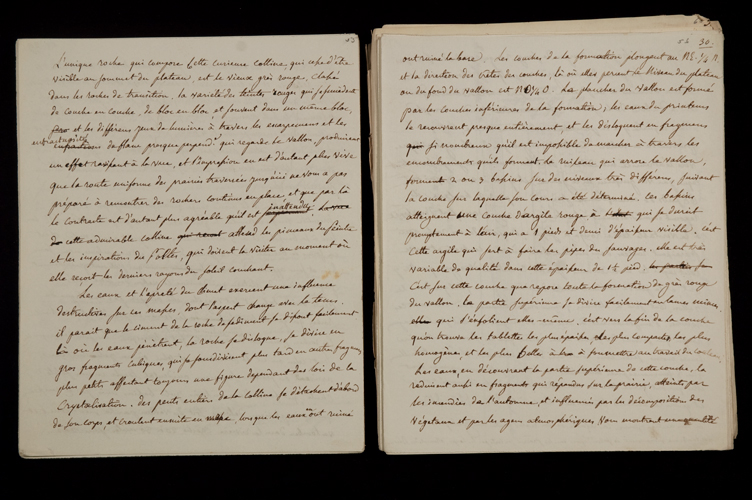 53
L'unique roche qui compose cette curieuse colline, qui cesse d'être
visible au sommet du plateau, est le vieux grès rouge, classé
dans les roches de transition, la variété des teintes rouges qui se succèdent
de couche en couche, de bloc en bloc, et souvent dans un même bloc,
et les différens jeux de lumière à travers les escarpemens et les
anfractuosités
du flanc presque perpend.re qui regarde le vallon, produisent
un effet ravissant à la vue, et l'impression en est d'autant plus vive
que la route uniforme des prairies traversées jusqu'ici ne vous a pas
préparé à rencontrer des roches continues en place, et que par là
le contraste est d'autant plus agréable qu'il est inattendu.
cette admirable colline attend les pinceaux du peintre
et les inspirations du poëte, qui doivent la visiter au moment où
elle reçoit les derniers rayons du soleil couchant.
Les eaux et l'âpreté du climat exercent une influence
destructive sur ces masses, dont l'aspect change avec le tems.
il parait que le ciment de la roche de sédiment se dissout facilement
là où les eaux pénètrent, la roche se disloque, se divise en
gros fragments cubiques, qui se subdivisent plus tard en autres fragmens
plus petits affectant toujours une figure dépendant des lois de la
Crystalisation. des pents entiers de la colline se détachent d'abord
de son corps, et croulent ensuite en masse, lorsque les eaux ont ruiné
52 30.
ont ruiné la base. Les couches de la formation plongent au
et la direction des têtes des couches, là où elles percent le niveau du plateau
ou du fond du vallon est Le plancher du vallon est formé
par les couches inférieures de la formation; les eaux du printems
le recouvrent presque entièrement, et les disloquent en fragmens
si nombreux qu'il est impossible de marcher à travers les
encombremens qu'ils forment, le ruisseau qui arrose le vallon,
forment 2 ou 3 bassins sur des niveaux très différens, suivant
la couche sur laquelle son cours a été déterminé. Ces bassins
atteignent une couche d'argile rouge à qui se durcit
promptement à l'air, qui a 1 pieds et demi d'épaisseur visible. c'est
cette argile qui sert à faire les pipes des sauvages. elle est très
variable de qualité dans cette épaisseur de 1½ pied,
C'est sur cette couche que repose toute la formation de grès rouge
du vallon. la partie supérieure se divise facilement en lames minces,
qui s'exfolient elles-même. c'est vers la fin de la couche
qu'on trouve les tablettes les plus épaisses, les plus compactes, les plus
homogènes, et les plus belles à se soumettre au travail du couteau.
Les eaux, en découvrant la partie supérieure de cette couche, la
réduisent aussi en fragments qui répandus sur la prairie, atteints par
les incendies de l'automne, et influencés par les décomposition des
végétaux et par les agens atmosphériques, vous montrent